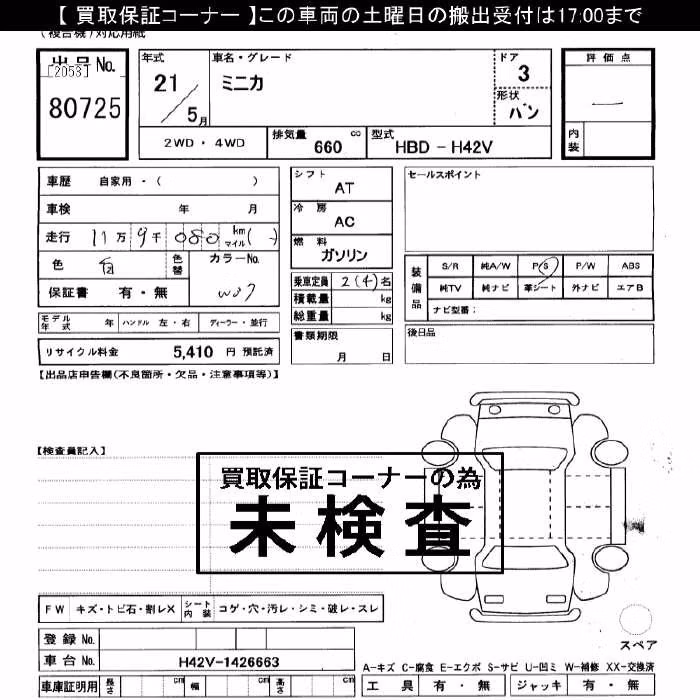 【 買取保証コーナー 】この車両の土曜日の搬出受付は17:00まで
(複合機)対応用紙
出品 No.
[2053]
80725
年式
21
5月
車名・グレード
ミニカ
ドア
3
形状
バン
評価点
内装
2WD・4WD
排気量
660
cc
型式
HBD - H42V
車歴 自家用 - ( )
車検 年 月
走行 11万 9千 080 km マイル ( )
色 白 色替 カラーNo. W07
保証書 有・無
シフト
AT
冷房
AC
燃料
ガソリン
乗車定員 2(4)名
積載量 kg
総重量 kg
セールスポイント
装備品
S/R 純A/W P/S P/W ABS
純TV 純ナビ 革シート 外ナビ エアB
ナビ型番:
モデル年式 年 ハンドル 左・右 ディーラー・並行
リサイクル料金 5,410 円 預託済
書類期限
月 日
後日品
【出品店申告欄(不良箇所・欠品・注意事項等)】
【検査員記入】
買取保証コーナーの為
未検査
FW キズ・トビ石・割レX シート内装 コゲ・穴・汚レ・シミ・破レ・スレ
登録 No.
車台 No. H42V-1426663
車庫証明用 長さ cm 幅 cm 高さ cm
スペア
A-キズ C-腐食 E-エクボ S-サビ U-凹ミ W-補修 XX-交換済
工具 有・無 ジャッキ 有・無